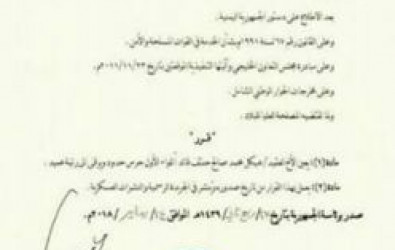 بعد الاطلاع على دستور الجمهورية اليمنية .
وعلى القانون رقم ٦٧ لسنة ١٩٩١ وبشأن الخدمة في القوات المسلحة والأمن .
وعلى مبادرة مجلس التعاون الخليجي وآليتها التنفيذية الموقعتين بتاريخ ٢٠١١/١١/٢٣م.
وعلى مخرجات الحوار الوطني الشامل .
ولما تقتضيه المصلحة العليا للبلاد .
"قرر"
مادة (١) يعين الأخ العقيد / هيكل محمد صالح حنتف قائد اللواء الأول حرس حدود ويرقى الى رتبة عميد .
مادة (٢) يعمل بهذا القرار من تاريخ صدوره وينشر في الجريدة الرسمية والنشرات العسكرية .
صدر برئاسة الجمهورية بتاريخ ١٤٣٩هـ الموافق ٢٠١٨م .